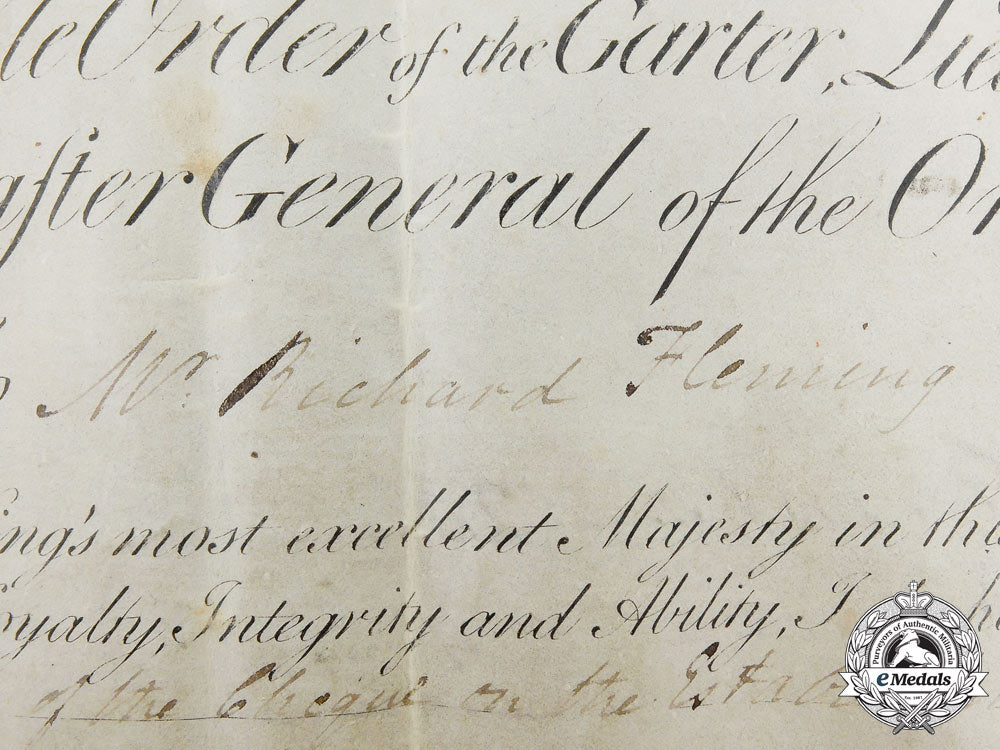 le Order of the Garter, Lieu
after General of the Or
Mr. Richard Fleming
ing's most excellent Majesty in this
oyalty, Integrity and Ability, I
of the Cheque on the Estab
Purveyors of Authentic Militaria
eMedals
Est. 1967